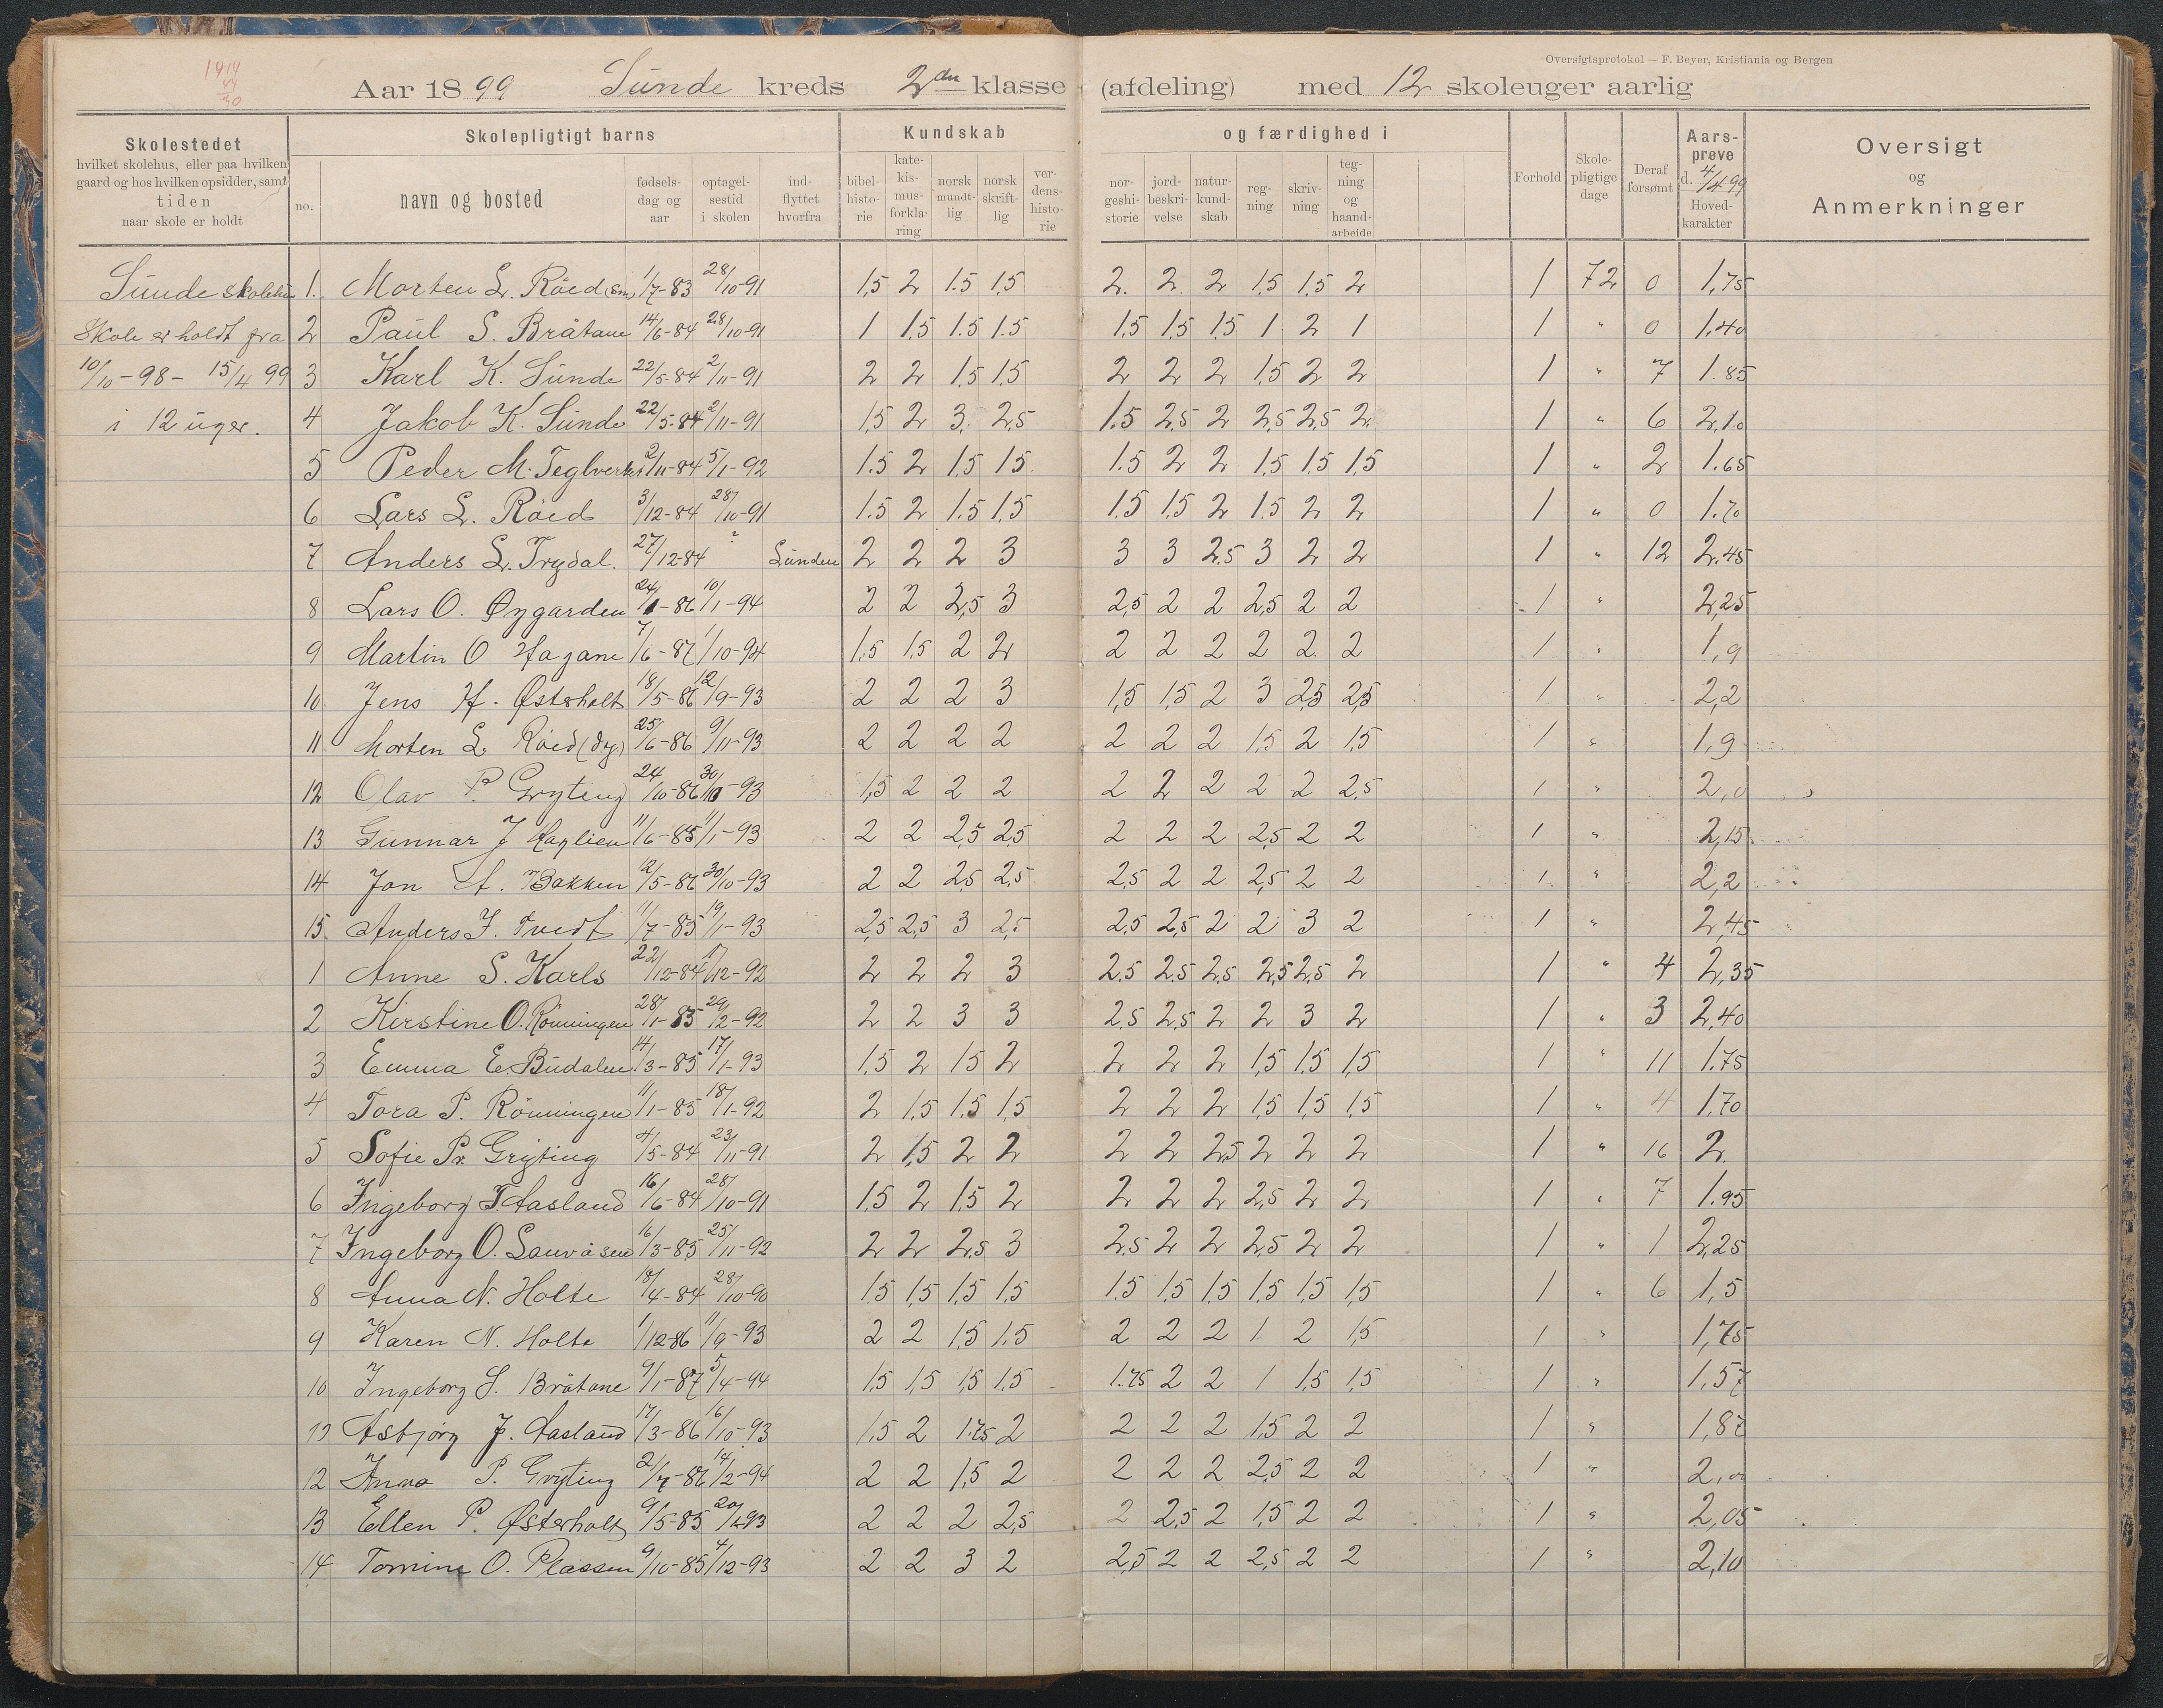 1914
Oversigtsprotokol — F. Beyer, Kristiania og Bergen
Aar 1899 Sunde kreds 2den klasse (afdeling) med 12 skoleuger aarlig
Skolestedet hvilket skolehus, eller paa hvilken gaard og hos hvilken opsidder, samt tiden naar skole er holdt
Skolepligtigt barns
no. navn og bosted fødselsdag og aar optagelsestid i skolen indflyttet hvorfra
Kundskab og færdighed i
bibelhistorie katekismusforklaring norsk mundtlig norsk skriftlig verdenshistorie norgeshistorie jordbeskrivelse naturkundskab regning skrivning tegning og haandarbeide
Forhold Skolepligtige dage Deraf forsømt Aarsprøve d. 4/4 99 Hovedkarakter
Oversigt og Anmerkninger
Sunde skolehus 1. Morten L. Röed (sm) 1/7-83 28/10-91 1,5 2 1.5 1,5 2. 2. 2 1,5 1,5 2 1 72 0 1,75
Skole er holdt fra 2 Paul S. Bråtane 14/6-84 28/10-91 1 1,5 1.5 1.5 1,5 1,5 1,5 1 2 1 1 " 0 1,40
10/10-98 - 15/4 99 3 Karl K. Sunde 22/5-84 2/11-91 2 2 1,5 1,5 2 2 2 1,5 2 2 1 " 7 1.85
i 12 uger. 4 Jakob K. Sunde 22/5-84 2/11-91 1,5 2 3. 2,5 1.5 2,5 2 2,5 2,5 2. 1 " 6 2,10
5 Peder M. Teglverket 2/11-84 5/1-92 1.5 2 1,5 1,5 1.5 2 2 1,5 1,5 1,5 1 " 2 1.65
6 Lars L. Röed 3/12-84 28/10-91 1.5 2 1.5 1,5 1.5 1,5 2 1.5 2 2 1 " 0 1.70
7 Anders L. Trydal. 27/12-84 ? Sunden 2 2 2 3 3 3 2.5 3 2 2 1 " 12 2.45
8 Lars O. Øygarden 24/1-86 10/1-94 2 2 2,5 3 2,5 2 2 2,5 2 2 1 " 2,25
9 Martin O Hagane 7/6-87 1/10-94 1.5 1,5 2 2 2 2 2 2 2 2 1 " 1,9
10 Jens H. Østerholt 18/5-86 12/9-93 2 2 2 3 1,5 1,5 2 3 2,5 2,5 1 " 2,2
11 Morten L Röed (dy.) 25/6-86 9/11-93 2 2 2 2 2 2 2 1,5 2 1,5 1 " 1,9
12 Olav P. Gryting 24/10-86 30/10-93 1,5 2 2 2 2 2 2 2 2 2,5 1 " 2,0
13 Gunnar J Haglien 11/6-85 11/1-93 2 2 2,5 2,5 2 2 2 2,5 2 2 1 " 2,15
14 Jon A. Bakken 12/5-86 30/10-93 2 2 2,5 2,5 2,5 2 2 2,5 2 2 1 " 2,2
15 Anders J. Tvedt 11/7-85 19/1-93 2,5 2,5 3 2,5 2,5 2,5 2 2 3 2 1 " 2,45
1 Anne S. Karls 22/12-84 17/12-92 2 2 2 3 2,5 2.5 2,5 2,5 2,5 2 1 " 4 2,35
2 Kirstine O. Rönningen 28/1-85 29/2-92 2 2 3 3 2,5 2,5 2 2 3 2 1 " 3 2,40
3 Emma E. Budalen 14/3-85 17/1-93 1,5 2 1,5 2 2 2 2 1,5 1,5 1,5 1 " 11 1.75
4 Tora P. Rönningen 11/1-85 18/1-92 2 1,5 1,5 1,5 2 2 2 1,5 1,5 1,5 1 " 4 1,70
5 Sofie P. Gryting 4/5-84 23/11-91 2 1,5 2 2 2 2 2,5 2 2 2 1 " 16 2.
6 Ingeborg T. Aasland 16/6-84 28/10-91 1,5 2 1,5 2 2 2 2 2,5 2 2 1 " 7 1.95
7 Ingeborg O. Sauråsen 16/3-85 25/11-92 2 2 2,5 3 2,5 2 2 2,5 2 2 1 " 1 2,25
8 Anna N. Holte 18/4-84 28/10-90 1,5 1,5 1,5 1,5 1.5 1,5 1,5 1,5 1,5 1,5 1 " 6 1,5
9 Karen N. Holte 1/12-86 11/9-93 2 2 1,5 1.5 2 2 2 1 2 1,5 1 " 1,75
10 Ingeborg S. Bråtane 9/1-87 5/4-94 1,5 1,5 1,5 1,5 1.75 2 2 1 1,5 1,5 1 " 1,57
Asbjørg J. Aasland 17/3-86 16/10-93 1,5 2 1.75 2 2 2 2 1,5 2 2 1 " 1,87
12 Anna P. Gryting 2/7-86 14/2-94 2 2 1,5 2 2 2 2 2,5 2 2 1 " 2,00
13 Ellen P. Østerholt 9/5-85 2 2 2 2,5 2 2,5 2 1,5 2 2 1 " 2,05
14 Tomine O. Plassen 9/10-85 4/12-93 2 2 3 2 2,5 2 2 2,5 2 2 1 " 2,10